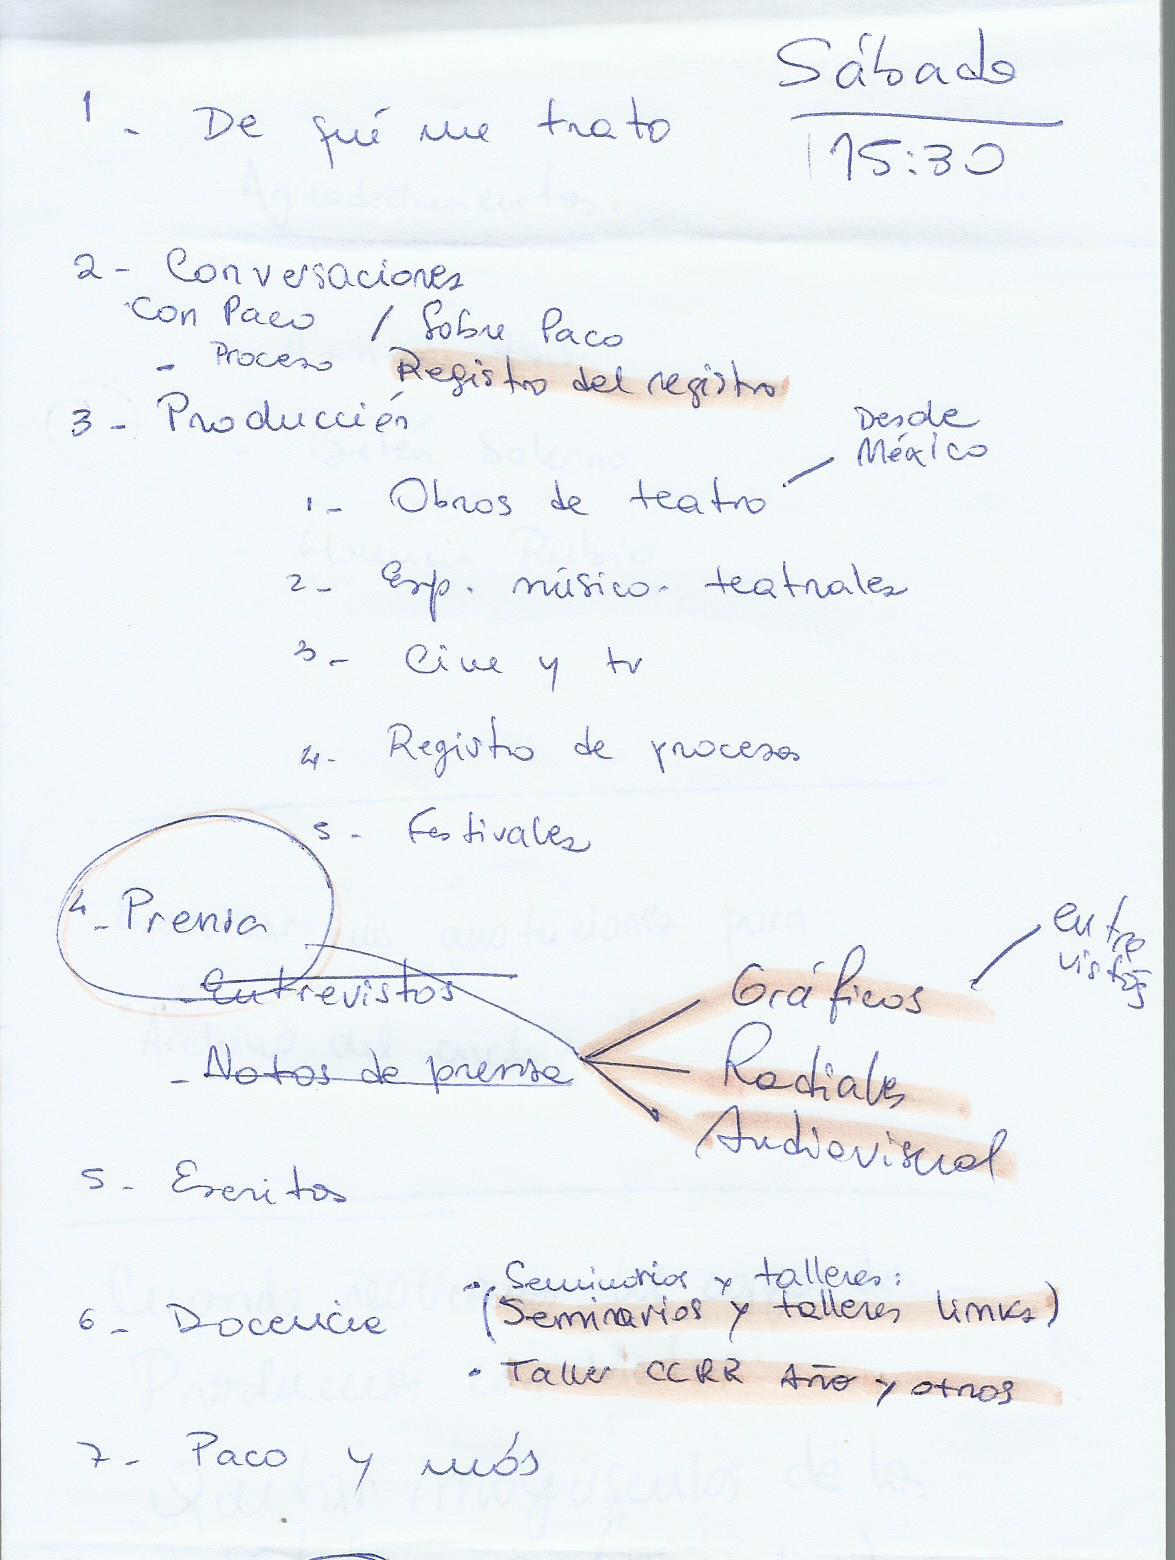 Sábado
15:30
1 - De qué me trato
2 - Conversaciones
Con Paco / Sobre Paco
- Proceso Registro del registro
3 - Producción
Desde
México
1 - Obras de teatro
2 - Esp. músico-teatrales
3 - Cine y tv
4 - Registro de procesos
5 - Festivales
4 - Prensa
- Entrevistas
entre
vistas
Gráficos
- Notas de prensa
Radiales
Audiovisual
5 - Escritos
6 - Docencia
• Seminarios y talleres:
(Seminarios y talleres links)
• Taller CCRR Año y otros
7 - Paco y más